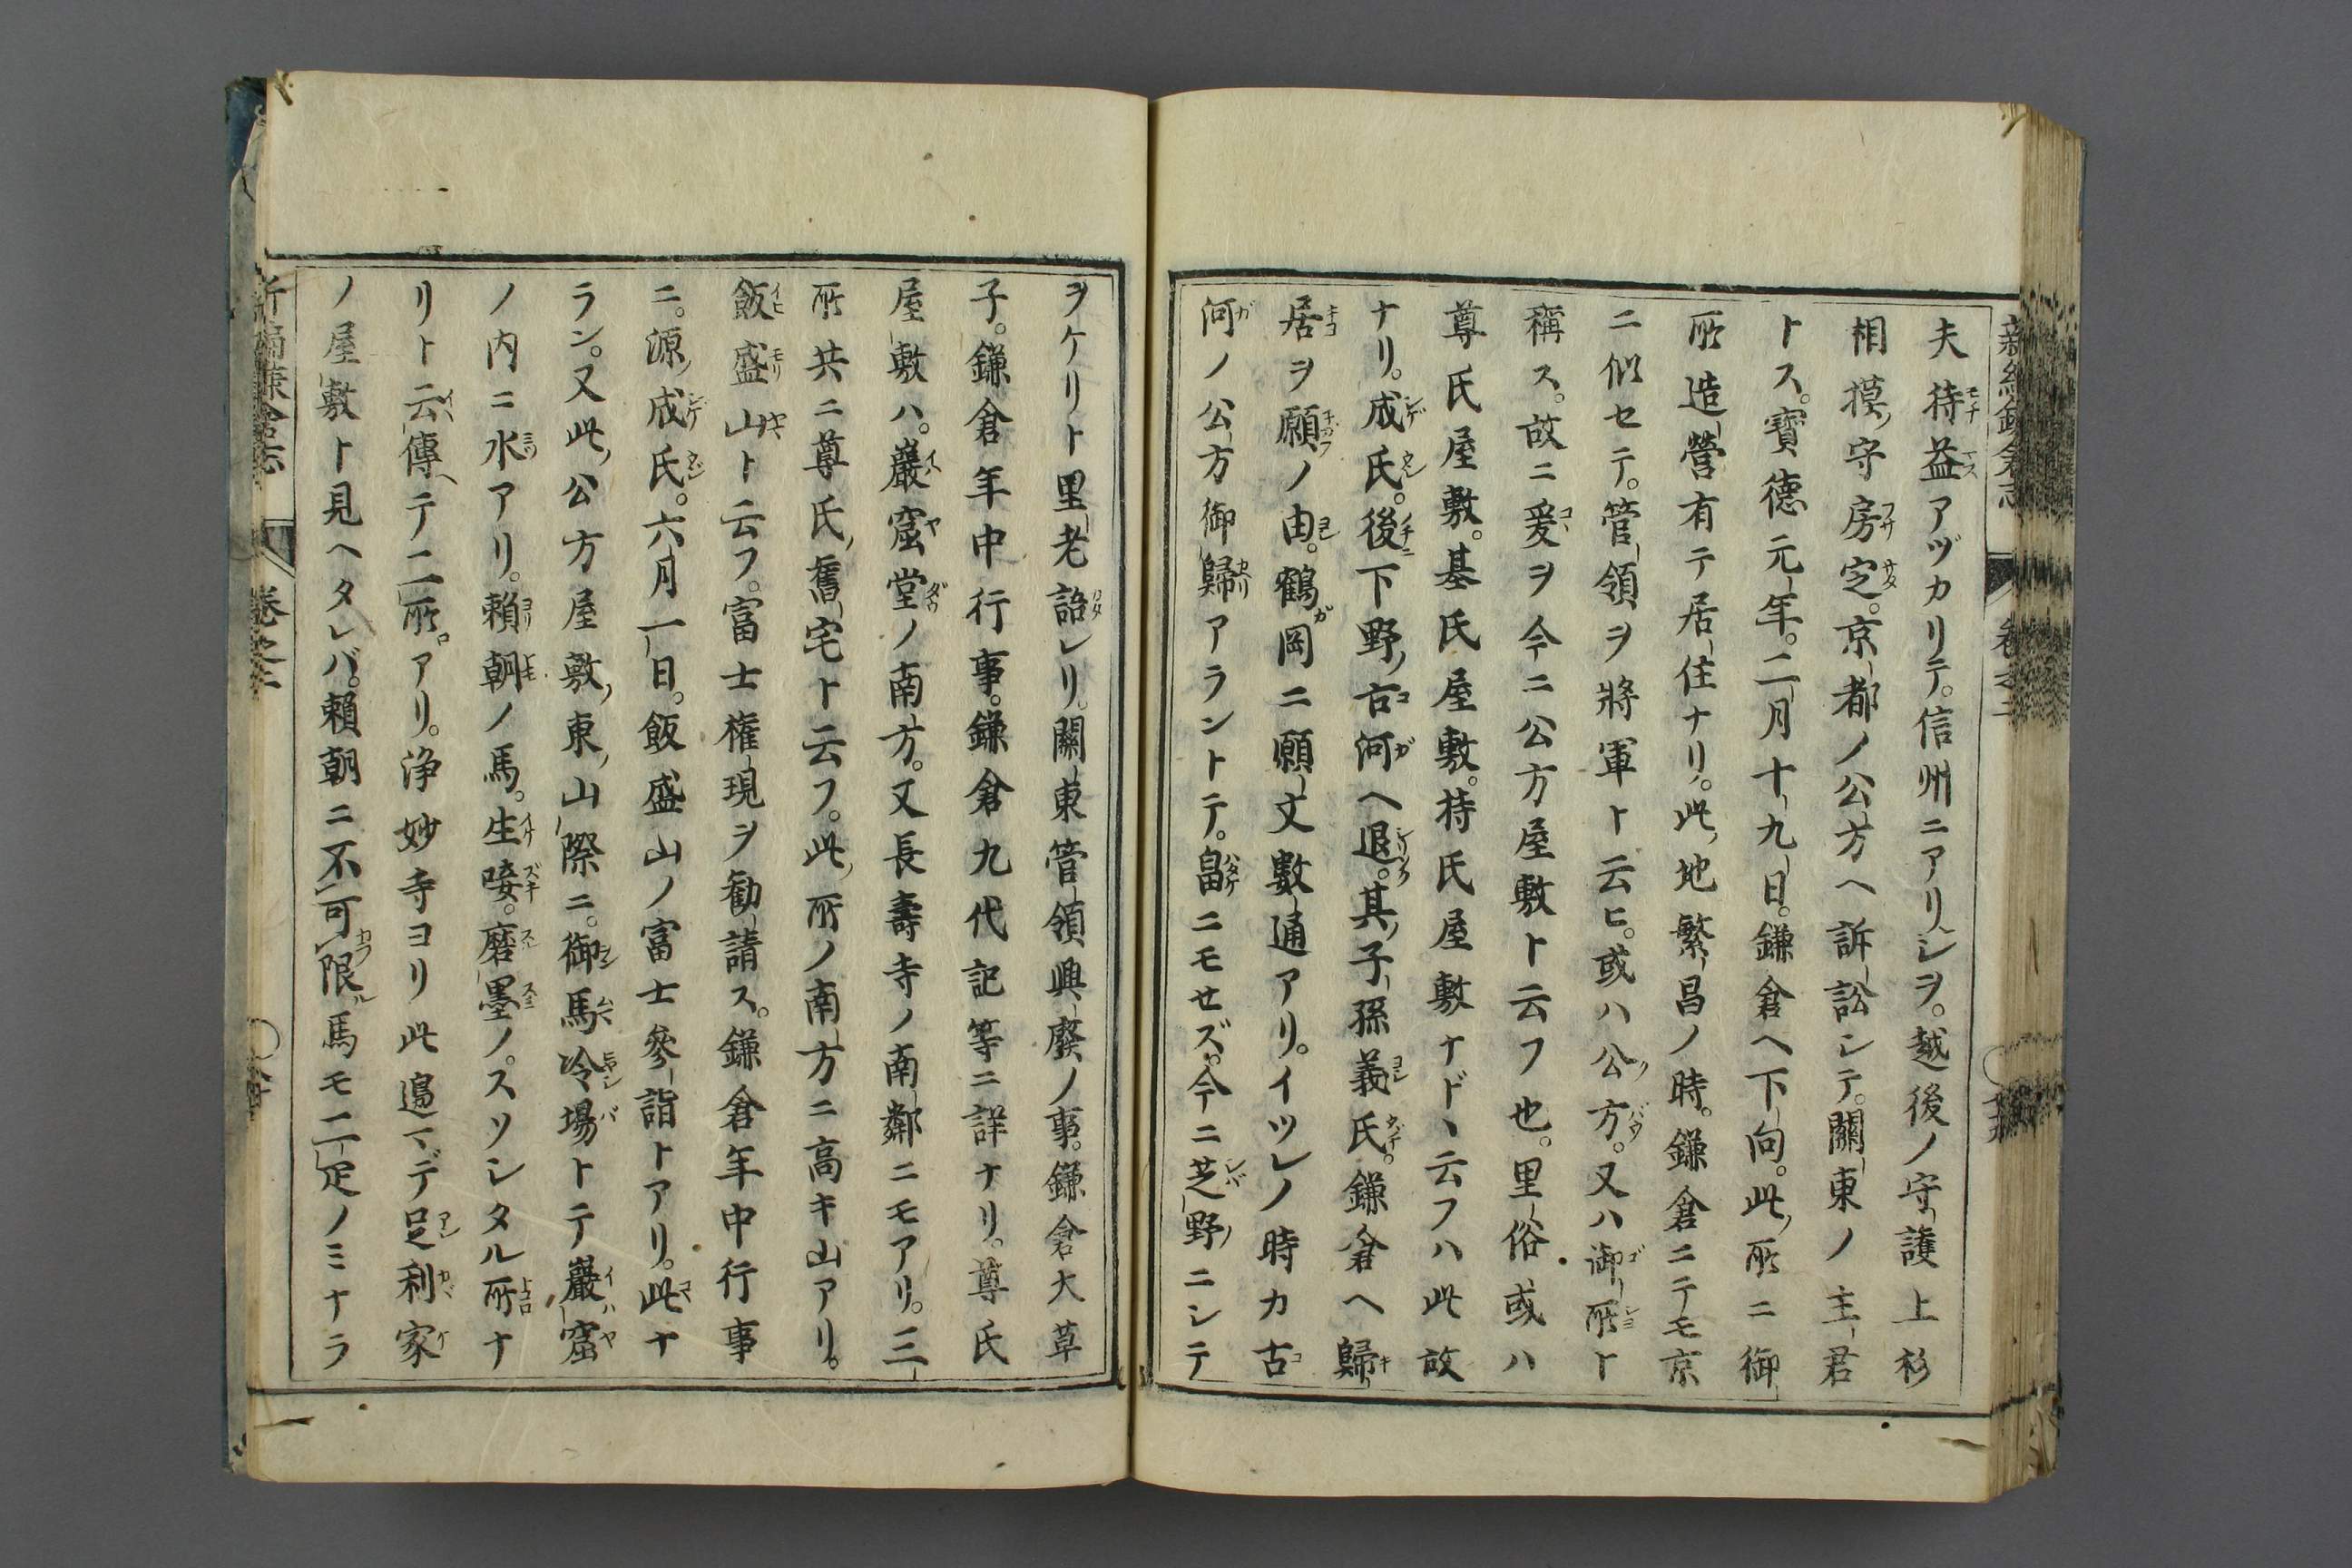 新編鎌倉志 卷之二
夫持益アヅカリテ。信州ニアリシヲ。越後ノ守護上杉
相摸守房定。京都ノ公方ヘ訴訟シテ。關東ノ主君
トス。寶德元年。二月十九日。鎌倉ヘ下向。此所ニ御
所造營有テ居住ナリ。此地繁昌ノ時。鎌倉ニテモ京
ニ似セテ。管領ヲ將軍ト云ヒ。或ハ公方。又ハ御所ト
稱ス。故ニ爰ヲ今ニ公方屋敷ト云フ也。里俗或ハ
尊氏屋敷。基氏屋敷。持氏屋敷ナド丶云フハ此故
ナリ。成氏。後下野古河ヘ退。其子孫義氏。鎌倉ヘ歸
居ヲ願ノ由。鶴岡ニ願文數通アリ。イツレノ時カ古
河ノ公方御歸アラントテ。畠ニモせズ。今ニ芝野ニシテ
ヲケリト里老語レリ。關東管領興廢ノ事。鎌倉大草
子。鎌倉年中行事。鎌倉九代記等ニ詳ナリ。尊氏
屋敷ハ。巖窟堂ノ南方。又長壽寺ノ南鄰ニモアリ。三
所共ニ尊氏舊宅ト云フ。此所ノ南方ニ高キ山アリ。
飯盛山ト云フ。富士權現ヲ勸請ス。鎌倉年中行事
ニ。源成氏。六月一日。飯盛山ノ富士參詣トアリ。此ナ
ラン。又此公方屋敷東山際ニ。御馬冷場トテ巖窟
ノ内ニ水アリ。賴朝ノ馬。生唼。磨墨ノ。スソシタル所ナ
リト云傳テ二所。アリ。浄妙寺ヨリ此邉マデ足利家
ノ屋敷ト見ヘタレバ。賴朝ニ不可限馬モ二疋ノミナラ
新編鎌倉志 卷之二